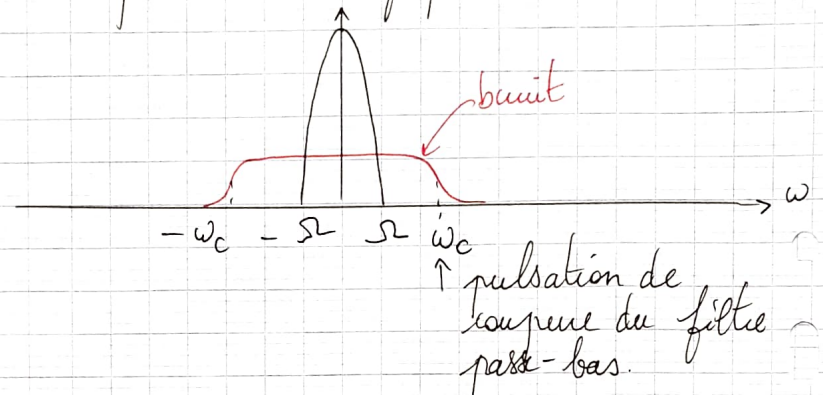 bruit
ω
-ωc -Ω Ω ωc
↑ pulsation de
coupure du filtre
passe-bas.